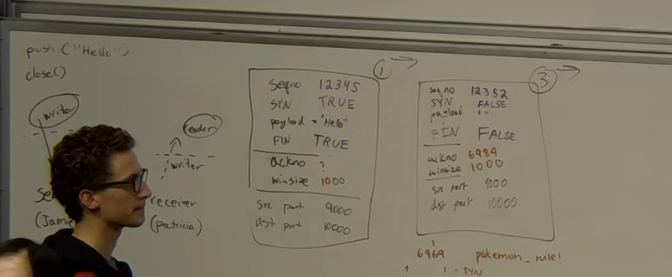 push ("Hello")
close()
writer
reader
writer
(Jamie
receiver
(patricia)
1
Seqno 12345
SYN TRUE
payload = "Hello"
FIN TRUE
ackno ?
winsize 1000
Src port 9000
dst port 10000
3
seqno 12352
SYN FALSE
payload = ""
FIN FALSE
ackno 6984
winsize 1000
src port 9000
dst port 10000
6969 pokemon_rule!
SYN